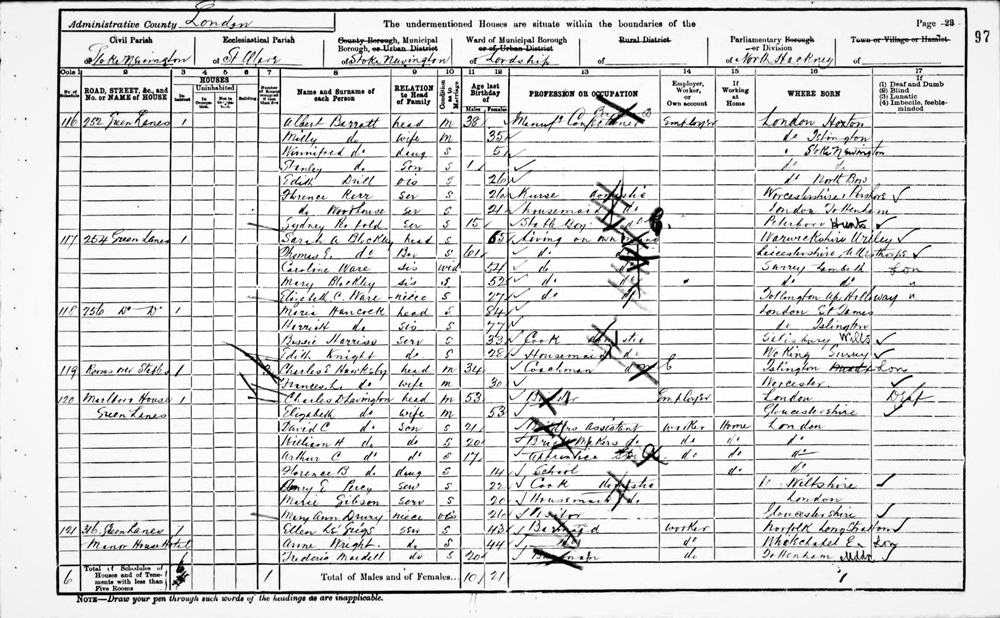 Administrative County London
The undermentioned Houses are situate within the boundaries of the
Page 23
97
Civil Parish
of Stoke Newington
Ecclesiastical Parish
of St Olave
County Borough, Municipal Borough, or Urban District
of Stoke Newington
Ward of Municipal Borough or of Urban District
of Lordship
Rural District
of
Parliamentary Borough or Division
of North Hackney
Town or Village or Hamlet
of
Cols 1 2 3 4 5 6 7 8 9 10 11 12 13 14 15 16 17
No. of Schedule
ROAD, STREET, &c., and No. or NAME of HOUSE
HOUSES
Inhabited
Uninhabited
In Occupation
Not in Occupation
Building
Name and Surname of each Person
RELATION to Head of Family
Condition as to Marriage
Age last Birthday of
Males Females
PROFESSION OR OCCUPATION
Employer, Worker, or Own account
If Working at Home
WHERE BORN
If
(1) Deaf and Dumb
(2) Blind
(3) Lunatic
(4) Imbecile, feeble-minded
116 252 Green Lanes 1 Albert Barratt head m 38 Manuf Confectioner Employer London Hoxton
Milly do wife m 35 do Islington
Winnifred do daug S 5 Stoke Newington
Stanley do Son S 1 do do
Edith Drill vis S 26 do North Bow
Florence Kerr Ser S 26 Nurse domestic Worcestershire Pershore
do Woodhouse Ser S 21 Housemaid do London Tottenham
Sydney Serv S 15 Stable Boy Peterboro Hunts
117 254 Green Lanes 1 Sarah A Blockley head S 65 Living on own means Warwickshire
Thomas E. do Bro S 61 do Leicestershire
Caroline Ware sis wid 54 do do Surrey Lambeth Lon
Mary Blockley sis S 52 do do do do
Elizabeth C. Ware niece S 27 do do Tollington Up. Holloway
118 256 Do Do 1 Maria Hancock head S 84 London St James
Harriet do Sis S 77 do Islington
Bessie Harriss Serv S 33 Cook domestic Salisbury Wilts
Edith Knight do S 28 Housemaid do Woking Surrey
119 Rooms over Stable 1 Charles E Hawksby head m 34 Coachman Islington Lon
Frances L. do wife m 30 Worcester
120 Marlboro House 1 Charles D Lavington head m 53 Builder Employer London Deaf
Green Lanes Elizabeth do wife m 53 Gloucestershire
David C do Son S 21 assistant worker Home London
William H do do S 20 Brick Makers do do do do
Arthur C do do S 17 Apprentice do do do
Florence B do daug S 14 School do do
E Percy Serv S 22 Cook domestic Wiltshire
Marie Gibson Serv S 20 Housemaid do London
Mary Ann Drury niece vis S 26 Visitor Gloucestershire
121 316 Green Lanes 1 Ellen Le Grégs Serv S 43 Barmaid worker Norfolk Long Stratton
Manor House Hotel Anne Wright do S 44 do do Whitechapel E. Lon
Frederic Mardell do S 20 Barman do Tottenham Middx
6 Total of Schedules of Houses and of Tenements with less than Five Rooms 6 1 Total of Males and of Females... 10 21
NOTE—Draw your pen through such words of the headings as are inapplicable.